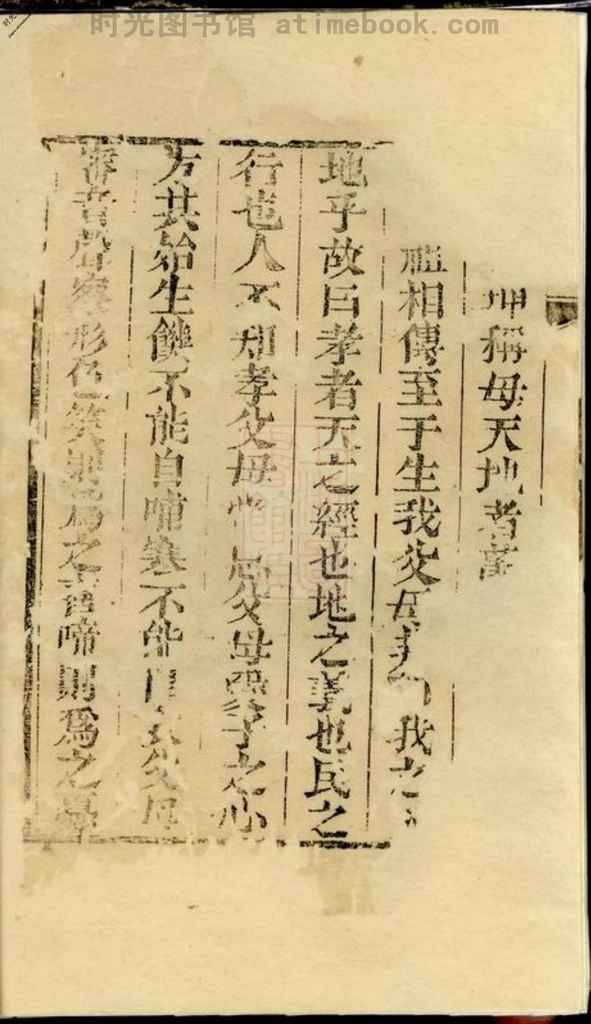 时光图书馆 atimebook.com
坤稱母天地者
祖相傳至于生我父母 我之
地乎故曰孝者天之經也地之義也民之
行也人不知孝父母 思父母 子之心
方其始生饑不能自哺寒不能自 父母
審音聲察形色笑則爲之喜啼則爲之憂